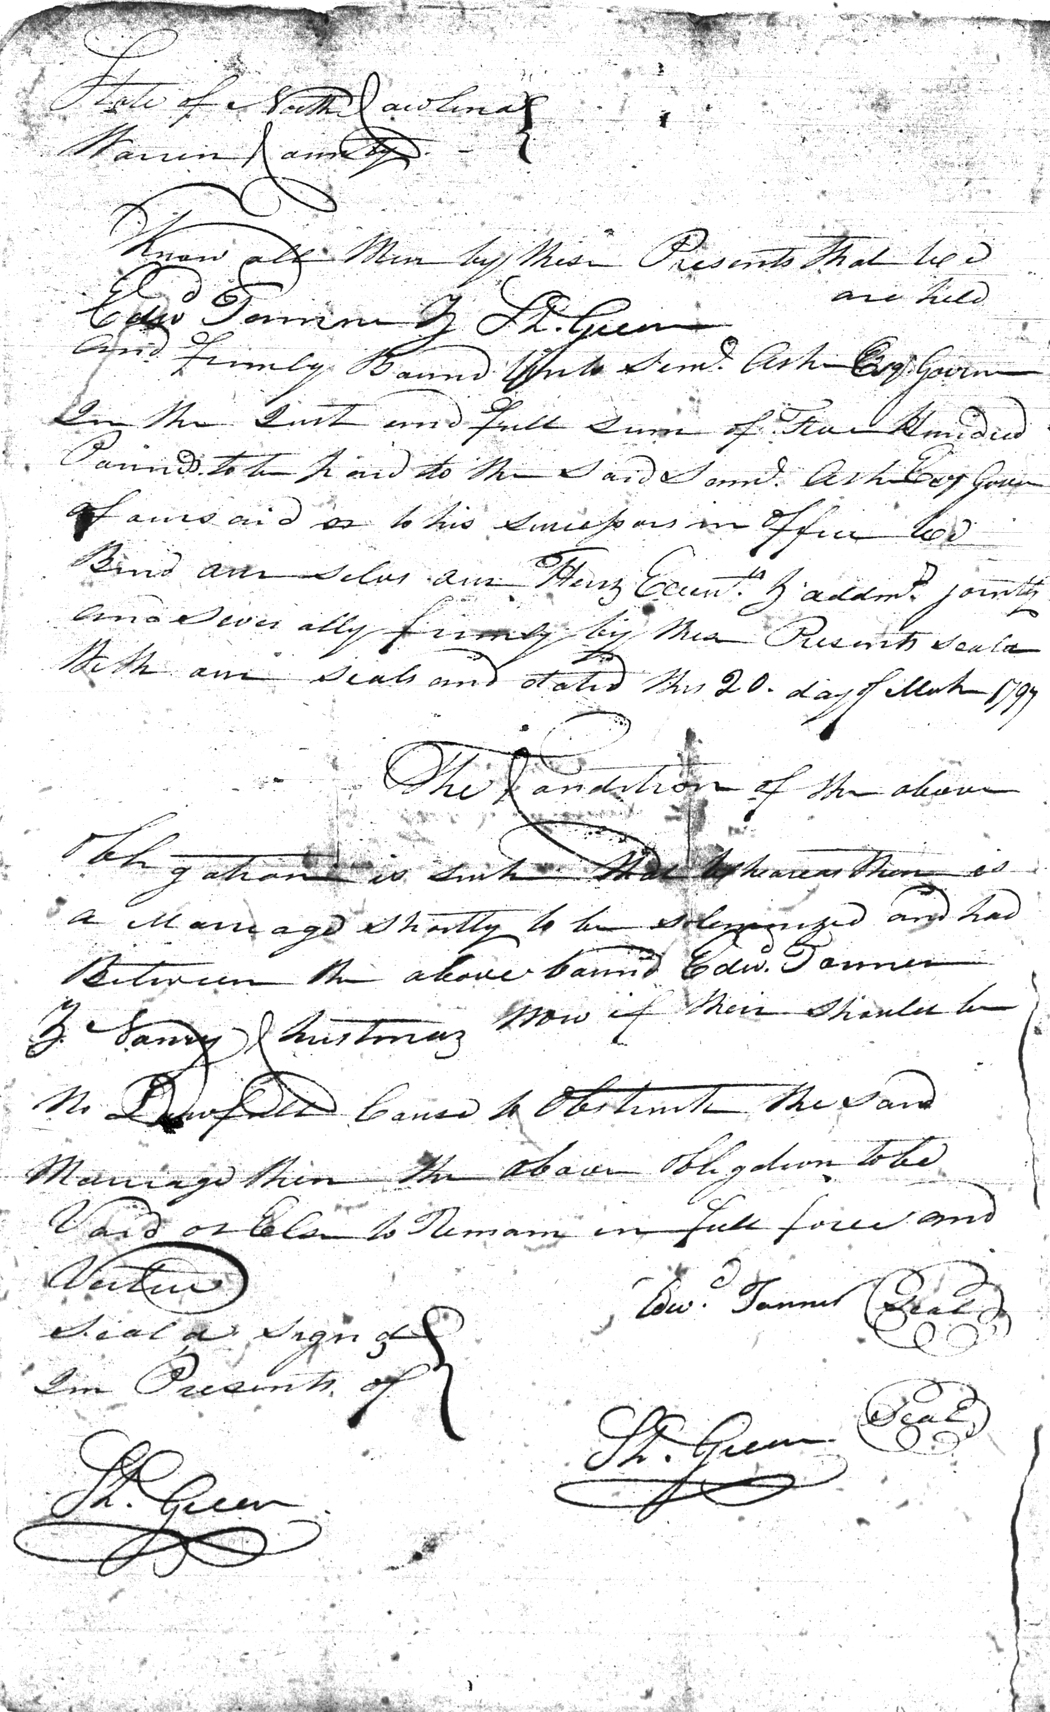 State of North Carolina
Warren County
Know all Men by these Presents that we
Edwd Tanner & Sh. Green are held
and firmly Bound Unto Saml. Ash Esqr Govern
In the Just and full Sum of Five Hundred
Pounds to be paid to the Said Saml. Ash Esqr Govern
afoursaid or to his Successors in Office We
Bind our selves our Heirs Excuts. & addms. jointly
and Severally firmly by these Presents seald
With our seals and dated this 20. day of March 1797
The Condition of the above
Obligation is such that Whereas there is
a Marriage Shortly to be solemnized and had
Between the above bound Edwd. Tanner
& Nancy Christmas Now if their should be
No Lawfull Cause to Obstruct the said
Marriage then the above obligation to be
Void or Else to Remain in full force and
Vertue
Seald Signd
In Presents of
Edwd. Tanner Seal
Sh. Green Seal
Sh. Green